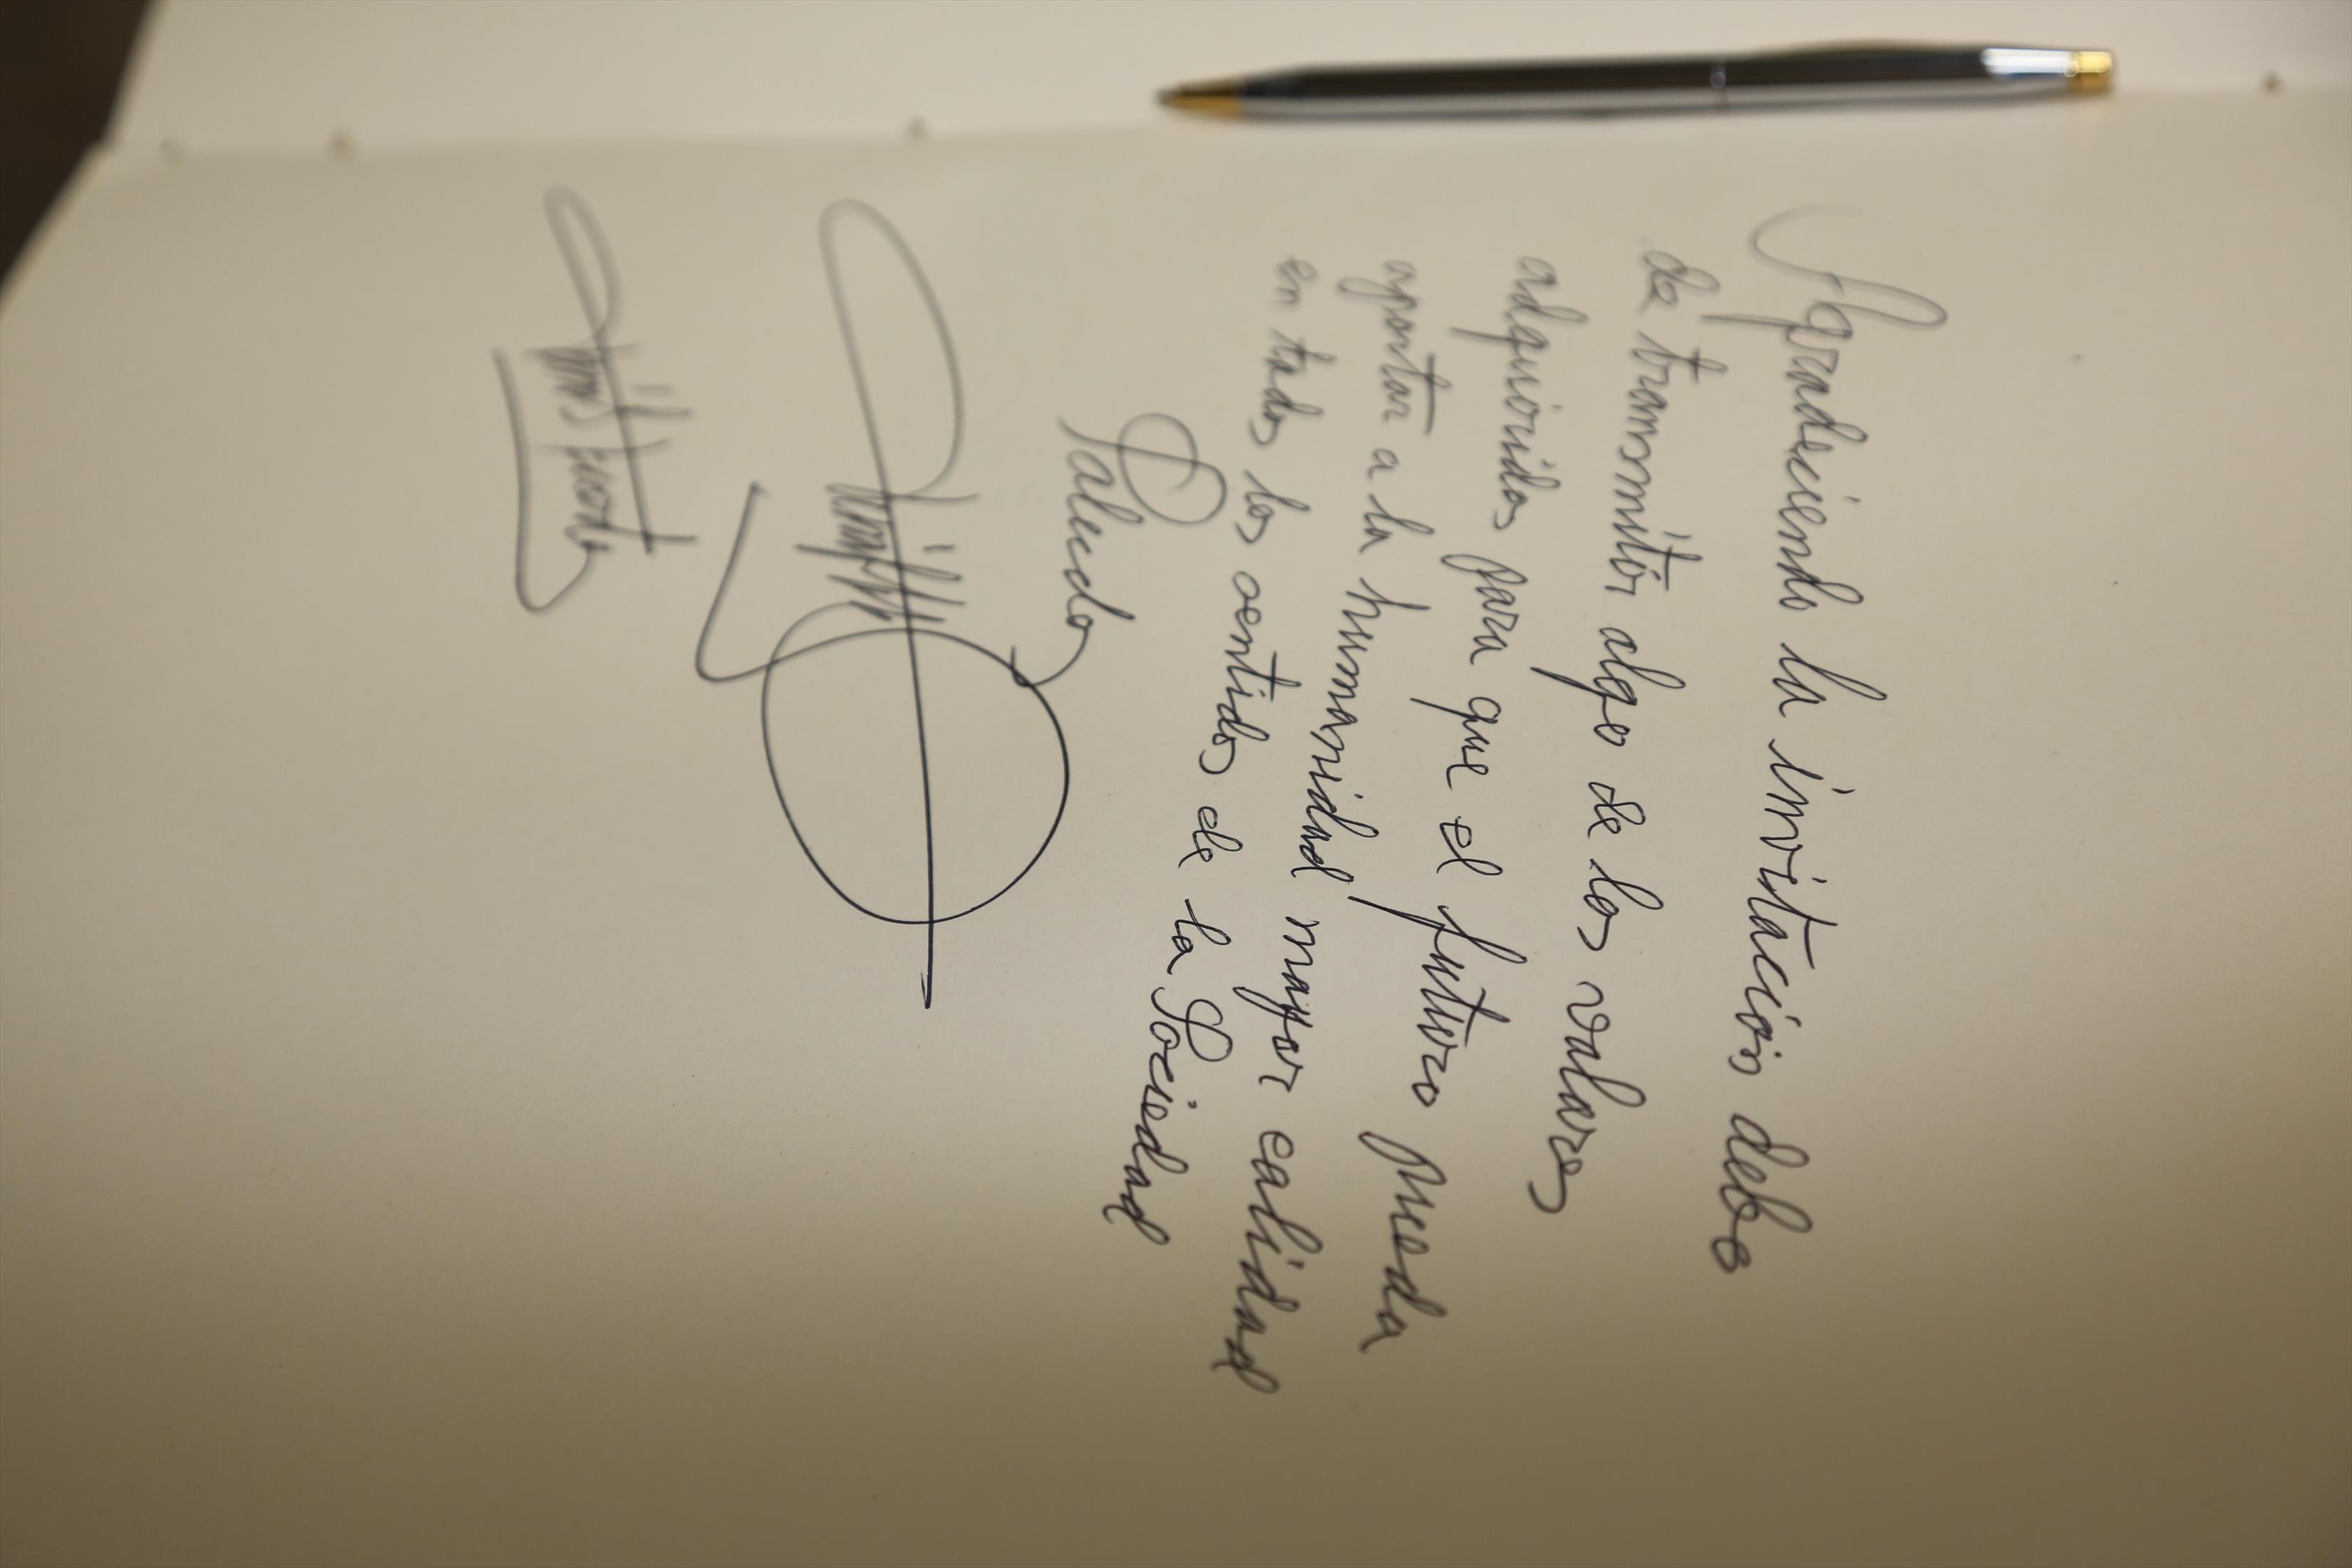 Agradeciendo la invitación debo
de transmitir algo de los valores
adquiridos para que el futuro pueda
aportar a la humanidad mayor calidad
en todos los sentidos de la Sociedad
Saludo